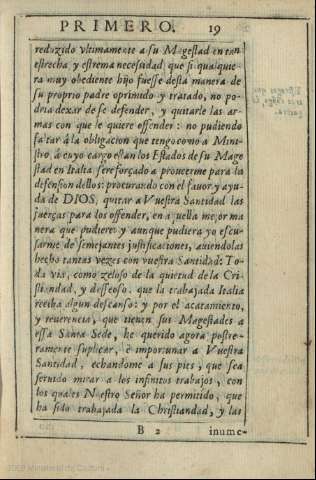 PRIMERO. 19
reduzido vltimamente a su Magestad en tan
estrecha y estrema necesidad que si qualquie-
ra muy obediente hijo fuesse desta manera de
su proprio padre oprimido y tratado, no po-
dria dexar de se defender, y quitarle las ar-
mas con que le quiere offender: no pudiendo
faltar à la obligacion que tengo como a Mini-
stro, à cuyo cargo estan los Estados de su Mage
stad en Italia sere forçado a proueerme para la
defension dellos: procurando con el fauor y ayu-
da de DIOS, quitar a Vuestra Santidad las
fuerças para los offender, en aquella mejor ma
nera que pudiere: y aunque pudiera yo escu-
sarme de semejantes justificaciones, auiendolas
hecho tantas vezes con vuestra Santidad: To-
da via, como zeloso de la quietud de la Cri-
stiandad, y desseoso, que la trabajada Italia
reciba algun descanso: y por el acatamiento,
y reuerencia, que tienen sus Magestades a
essa Santa Sede, he querido agora postre-
ramente suplicar, è importunar a Vuestra
Santidad, echandome a sus pies, que sea
seruido mirar a los infinitos trabajos, con
los quales Nuestro Señor ha permitido, que
ha sido trabajada la Christiandad, y las
B 2 inume-